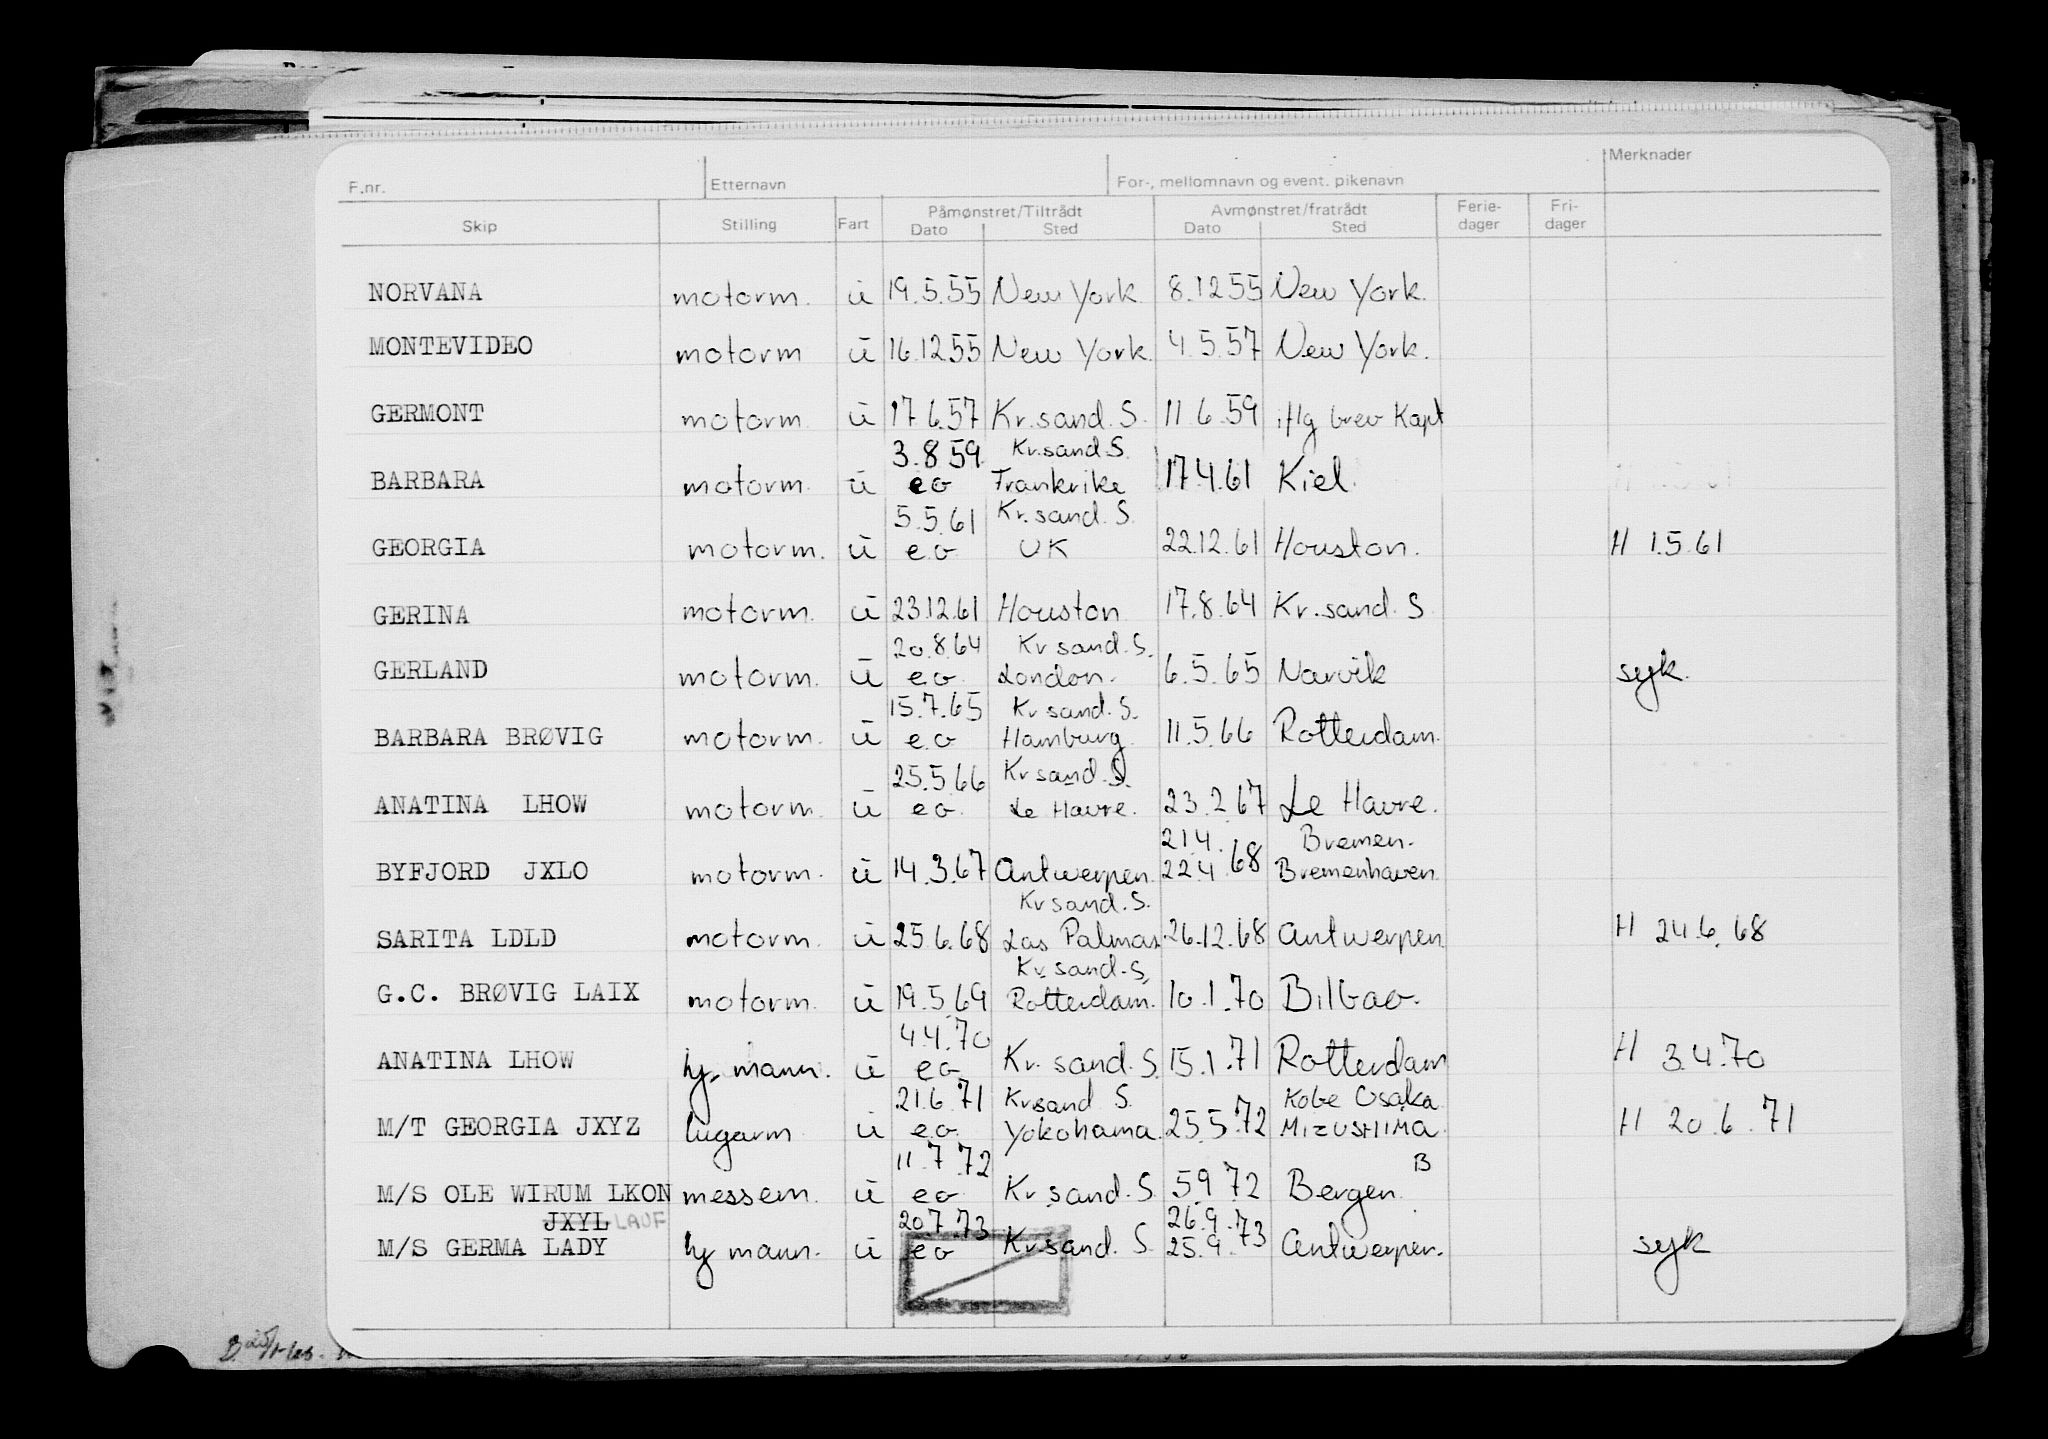 F.nr. Etternavn For-, mellomnavn og event. pikenavn Merknader
Skip Stilling Fart Påmønstret/Tiltrådt Avmønstret/fratrådt Ferie- Fri-
Dato Sted Dato Sted dager dager
NORVANA motorm. ü 19.5.55 New York 8.12 55 New York.
MONTEVIDEO motorm ü 16.12.55 New York. 4.5.57 New York.
GERMONT motorm ü 17.6.57 Kr.sand.S. 11 6.59 iflg brev Kapt
3.8.59. Kr.sand.S.
BARBARA motorm. ü eo Frankrike 17.4.61 Kiel.
5.5.61 Kr.sand.S.
GEORGIA motorm. ü e.o UK 22.12.61 Houston. H 1.5.61
GERINA motorm. ü 23.12.61 Houston 17.8.64 Kr.sand.S
20.8.64 Kr sand.S.
GERLAND motorm. ü e.o. London. 6.5.65 Narvik syk.
15.7.65 Kr sand.S.
BARBARA BRØVIG motorm. ü e.o Hamburg. 11.5.66 Rotterdam.
25.5.66 Kr sand.S.
ANATINA LHOW motorm. ü eo. Le Havre. 23.2.67 Le Havre.
21.4. Bremen.
BYFJORD JXLO motorm. ü 14.3.67 Antwerpen. 22.4.68 Bremenhaven.
Kr sand.S.
SARITA LDLD motorm. ü 25.6.68 Las Palmas 26.12.68 Antwerpen H 24.6.68
Kr.sand.S,
G.C. BRØVIG LAIX motorm. ü 19.5.69 Rotterdam. 10.1.70 Bilbao.
4.4.70
ANATINA LHOW ly.mann. ü eo Kr.sand.S. 15.1.71 Rotterdam H 3.4.70
21.6.71 Kr.sand S. Kobe Osaka
M/T GEORGIA JXYZ lugarm ü e.o. Yokohama. 25.5.72 MIZUSHIMA. H 20.6.71
11.7.72 B
M/S OLE WIRUM LKON messem. ü eo Kr.sand.S 5.9 72 Bergen.
JXYL LAUF 20.7.73 26.9.
M/S GERMA LADY ly mann. ü eo Kr.sand.S 25.9.73 Antwerpen. syk